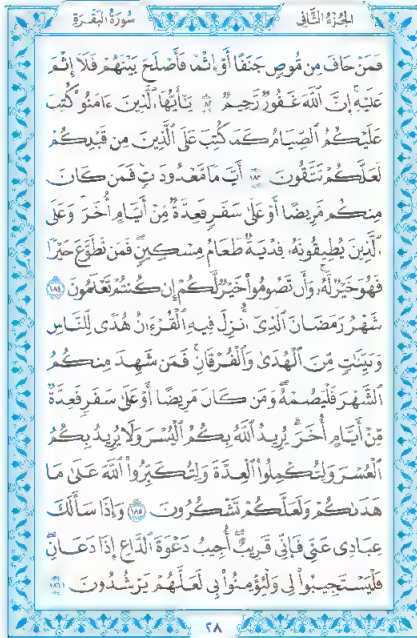 الجزء الثاني
سورة البقرة
فَمَنْ خَافَ مِن مُّوصٍ جَنَفًا أَوْ إِثْمًا فَأَصْلَحَ بَيْنَهُمْ فَلَا إِثْمَ
عَلَيْهِ إِنَّ اللَّهَ غَفُورٌ رَّحِيمٌ ١٨٢ يَا أَيُّهَا الَّذِينَ ءَامَنُوا كُتِبَ
عَلَيْكُمُ الصِّيَامُ كَمَا كُتِبَ عَلَى الَّذِينَ مِن قَبْلِكُمْ
لَعَلَّكُمْ تَتَّقُونَ ١٨٣ أَيَّامًا مَّعْدُودَاتٍ فَمَن كَانَ
مِنكُم مَّرِيضًا أَوْ عَلَى سَفَرٍ فَعِدَّةٌ مِّنْ أَيَّامٍ أُخَرَ وَعَلَى
الَّذِينَ يُطِيقُونَهُ فِدْيَةٌ طَعَامُ مِسْكِينٍ فَمَن تَطَوَّعَ خَيْرًا
فَهُوَ خَيْرٌ لَّهُ وَأَن تَصُومُوا خَيْرٌ لَّكُمْ إِن كُنتُمْ تَعْلَمُونَ ١٨٤
شَهْرُ رَمَضَانَ الَّذِي أُنزِلَ فِيهِ الْقُرْءَانُ هُدًى لِّلنَّاسِ
وَبَيِّنَاتٍ مِّنَ الْهُدَى وَالْفُرْقَانِ فَمَن شَهِدَ مِنكُمُ
الشَّهْرَ فَلْيَصُمْهُ وَمَن كَانَ مَرِيضًا أَوْ عَلَى سَفَرٍ فَعِدَّةٌ
مِّنْ أَيَّامٍ أُخَرَ يُرِيدُ اللَّهُ بِكُمُ الْيُسْرَ وَلَا يُرِيدُ بِكُمُ
الْعُسْرَ وَلِتُكْمِلُوا الْعِدَّةَ وَلِتُكَبِّرُوا اللَّهَ عَلَى مَا
هَدَاكُمْ وَلَعَلَّكُمْ تَشْكُرُونَ ١٨٥ وَإِذَا سَأَلَكَ
عِبَادِي عَنِّي فَإِنِّي قَرِيبٌ أُجِيبُ دَعْوَةَ الدَّاعِ إِذَا دَعَانِ
فَلْيَسْتَجِيبُوا لِي وَلْيُؤْمِنُوا بِي لَعَلَّهُمْ يَرْشُدُونَ ١٨٦
٢٨